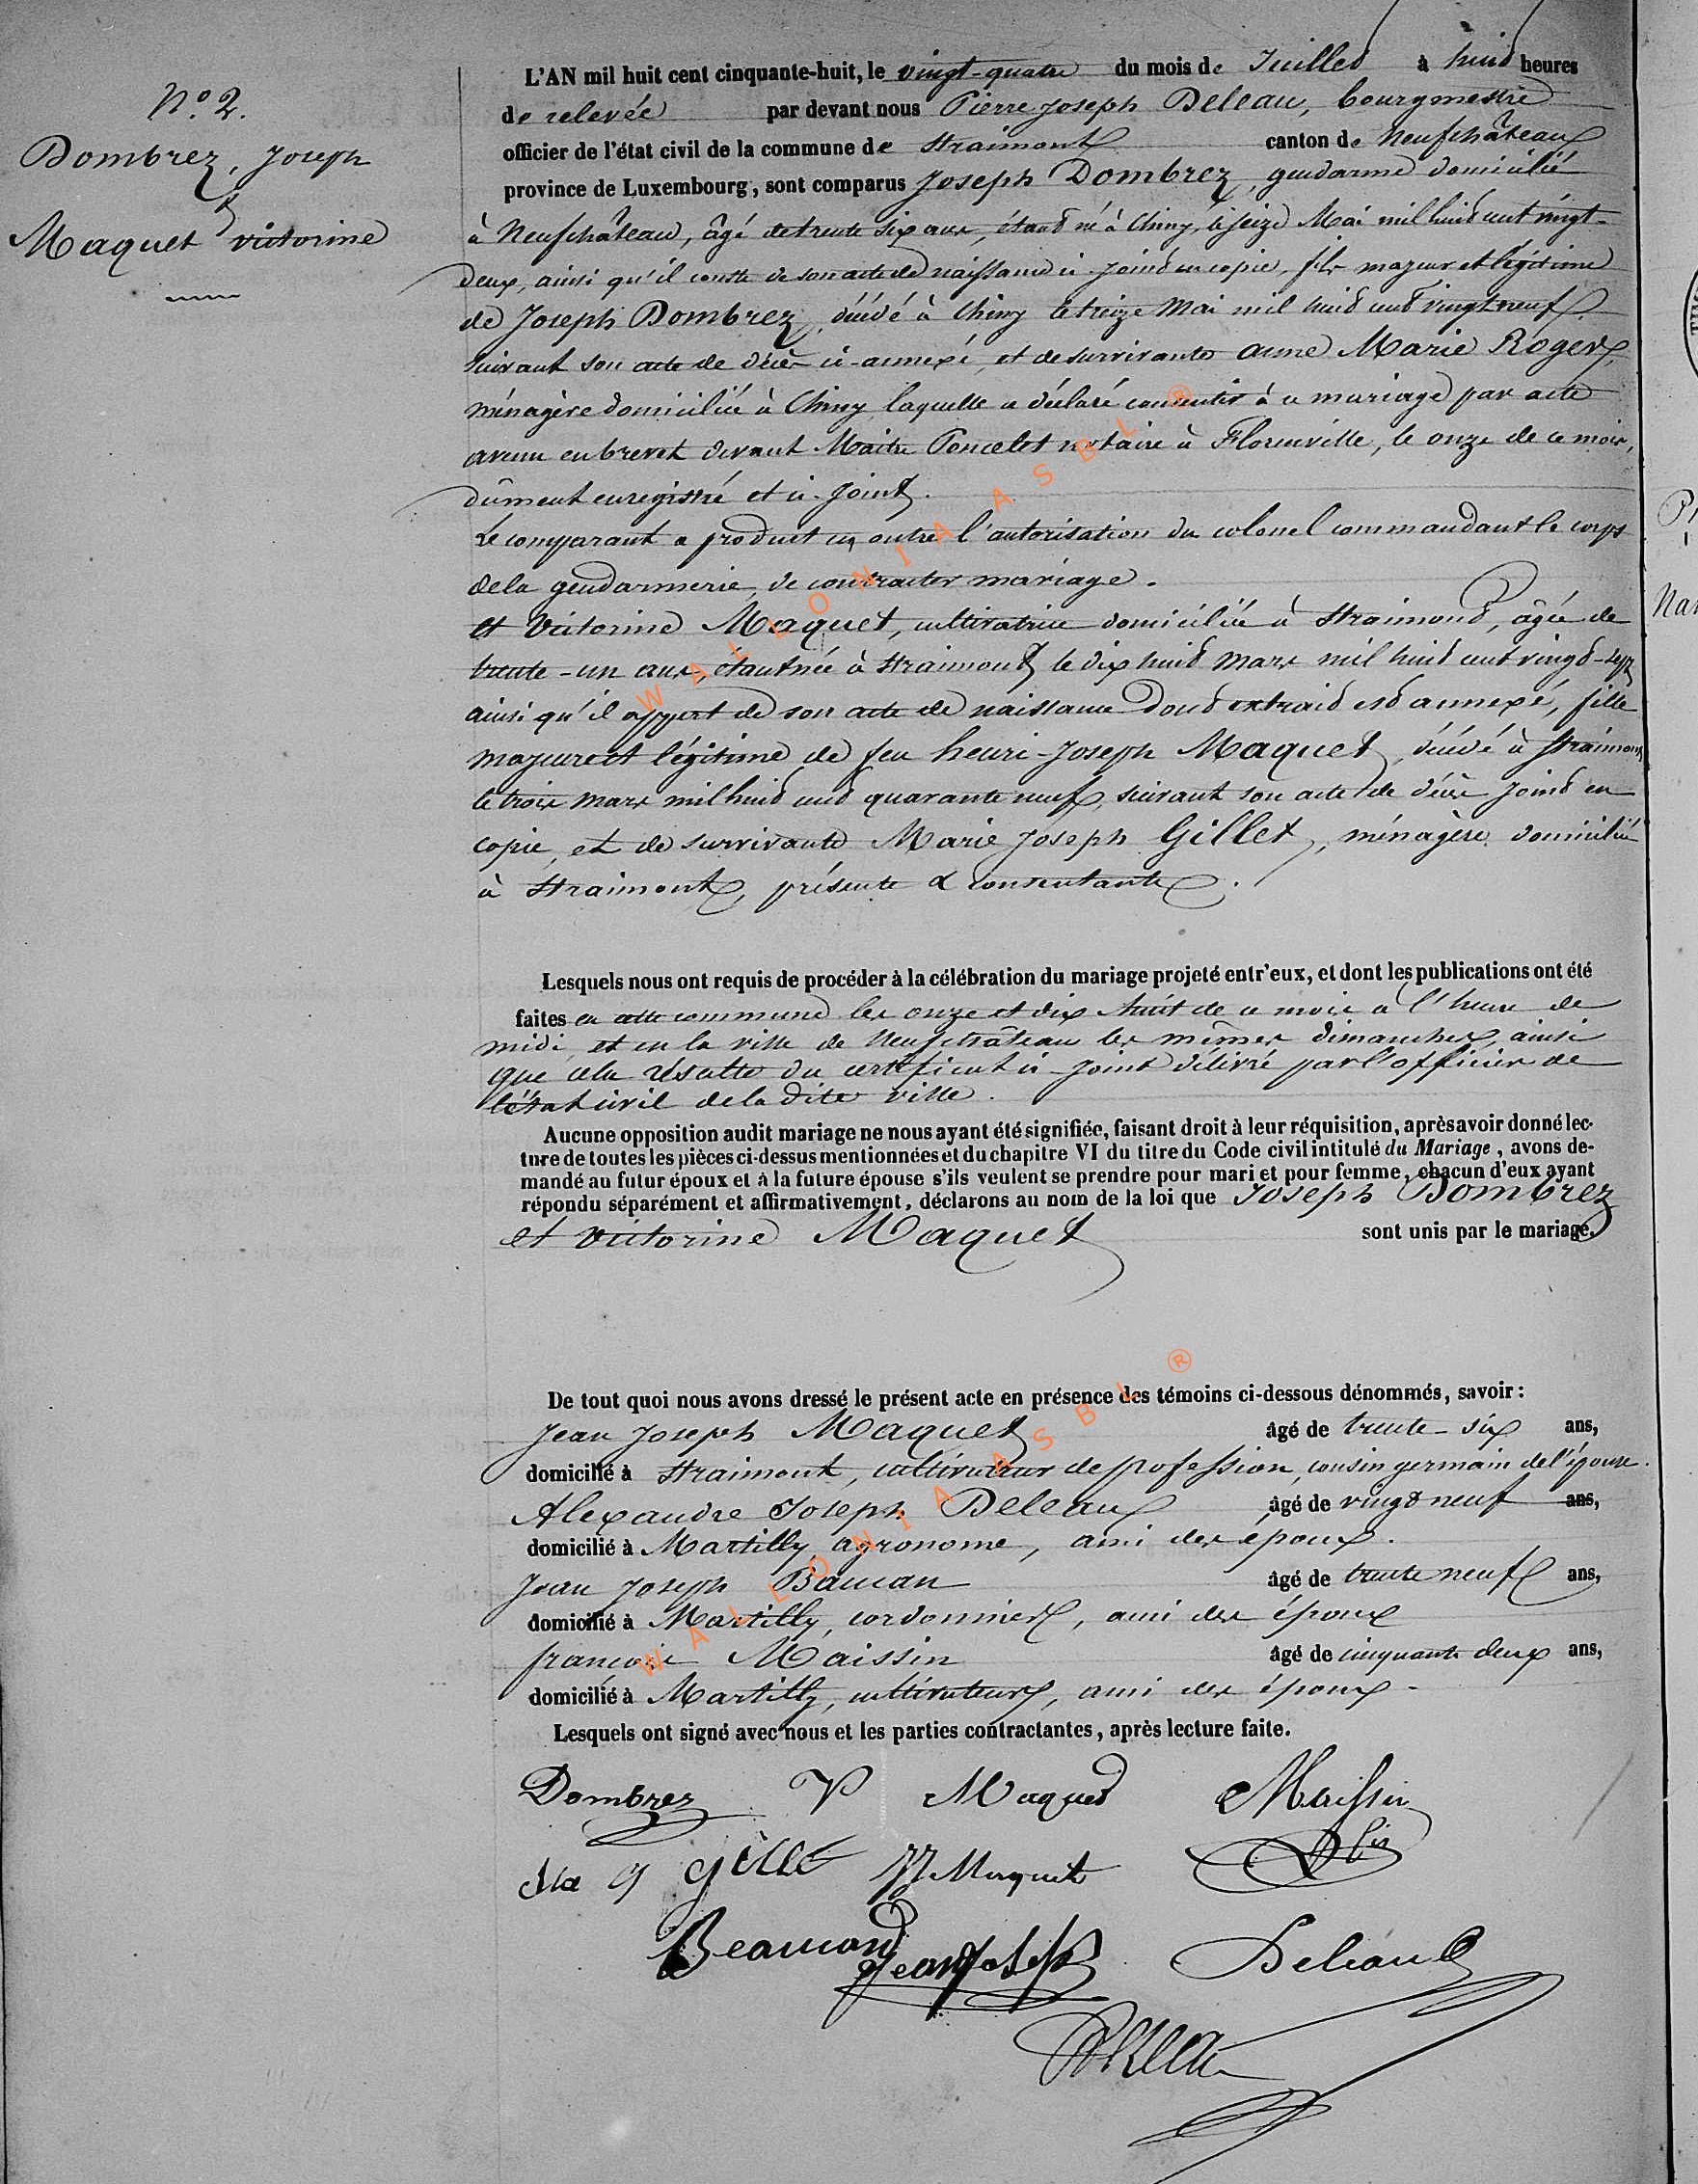 N.° 2.
Dombrez, Joseph
&
Maquet victorine
L'AN mil huit cent cinquante-huit, le vingt-quatre du mois de Juillet à huit heures
de relevée par devant nous Pierre Joseph Deleau, bourgmestre
officier de l'état civil de la commune de Straimont canton de Neufchâteau
province de Luxembourg, sont comparus Joseph Dombrez, gendarme domicilié
à Neufchâteau, âgé de trente six ans, étant né à Chiny, le seize Mai mil huit cent vingt-
deux, ainsi qu'il conste de son acte de naissance ci-joint en copie, fils majeur et légitime
de Joseph Dombrez, décédé à Chiny le treize Mai mil huit cent vingt neuf
suivant son acte de décès ci-annexé, et de survivante anne Marie Roger,
ménagère domiciliée à Chiny, laquelle a déclaré consentir à ce mariage par acte
avenu en brevet devant Maitre Poncelet notaire à Florenville, le onze de ce mois,
dûment enregistré et ci-joint.
Le comparant a produit en outre l'autorisation du colonel commandant le corps
de la gendarmerie, de contracter mariage.
et Victorine Maquet, cultivatrice domiciliée à Straimont, âgée de
trente-un ans, étant née à Straimont le dix huit mars mil huit cent vingt-sept
ainsi qu'il appert de son acte de naissance dont extrait est annexé, fille
majeure et légitime de feu henri-Joseph Maquet, décédé à Straimont
le trois mars mil huit cent quarante neuf, suivant son acte de décès joint en
copie, et de survivante Marie Joseph Gillet, ménagère domiciliée
à Straimont, présente & consentante.
Lesquels nous ont requis de procéder à la célébration du mariage projeté entr'eux, et dont les publications ont été
faites en cette commune les onze et dix huit de ce mois a l'heure de
midi, et en la ville de Neufchâteau les mêmes dimanches, ainsi
que cela résulte du certificat ci-joint délivré par l'officier de
l'état civil de la dite ville.
Aucune opposition audit mariage ne nous ayant été signifiée, faisant droit à leur réquisition, après avoir donné lec-
ture de toutes les pièces ci-dessus mentionnées et du chapitre VI du titre du Code civil intitulé du Mariage, avons de-
mandé au futur époux et à la future épouse s'ils veulent se prendre pour mari et pour femme, chacun d'eux ayant
répondu séparément et affirmativement, déclarons au nom de la loi que Joseph Dombrez
et Victorine Maquet sont unis par le mariage.
De tout quoi nous avons dressé le présent acte en présence des témoins ci-dessous dénommés, savoir:
Jean Joseph Maquet âgé de trente-six ans,
domicilié à Straimont, cultivateur de profession, cousin germain de l'épouse.
Alexandre Joseph Deleau âgé de vingt neuf ans,
domicilié à Martilly agronome, ami des époux.
Jean Joseph Bauan âgé de trente neuf ans,
domicilié à Martilly, cordonnier, ami des époux
françois Maissin âgé de cinquante deux ans,
domicilié à Martilly, cultivateur, ami des époux
Lesquels ont signé avec nous et les parties contractantes, après lecture faite.
Dombrez V Maquet Maissin
Ma j gille JJ Maquet
Beauan Jean Joseph Deleau
WALLONIA ASBL ®
WALLONIA ASBL ®